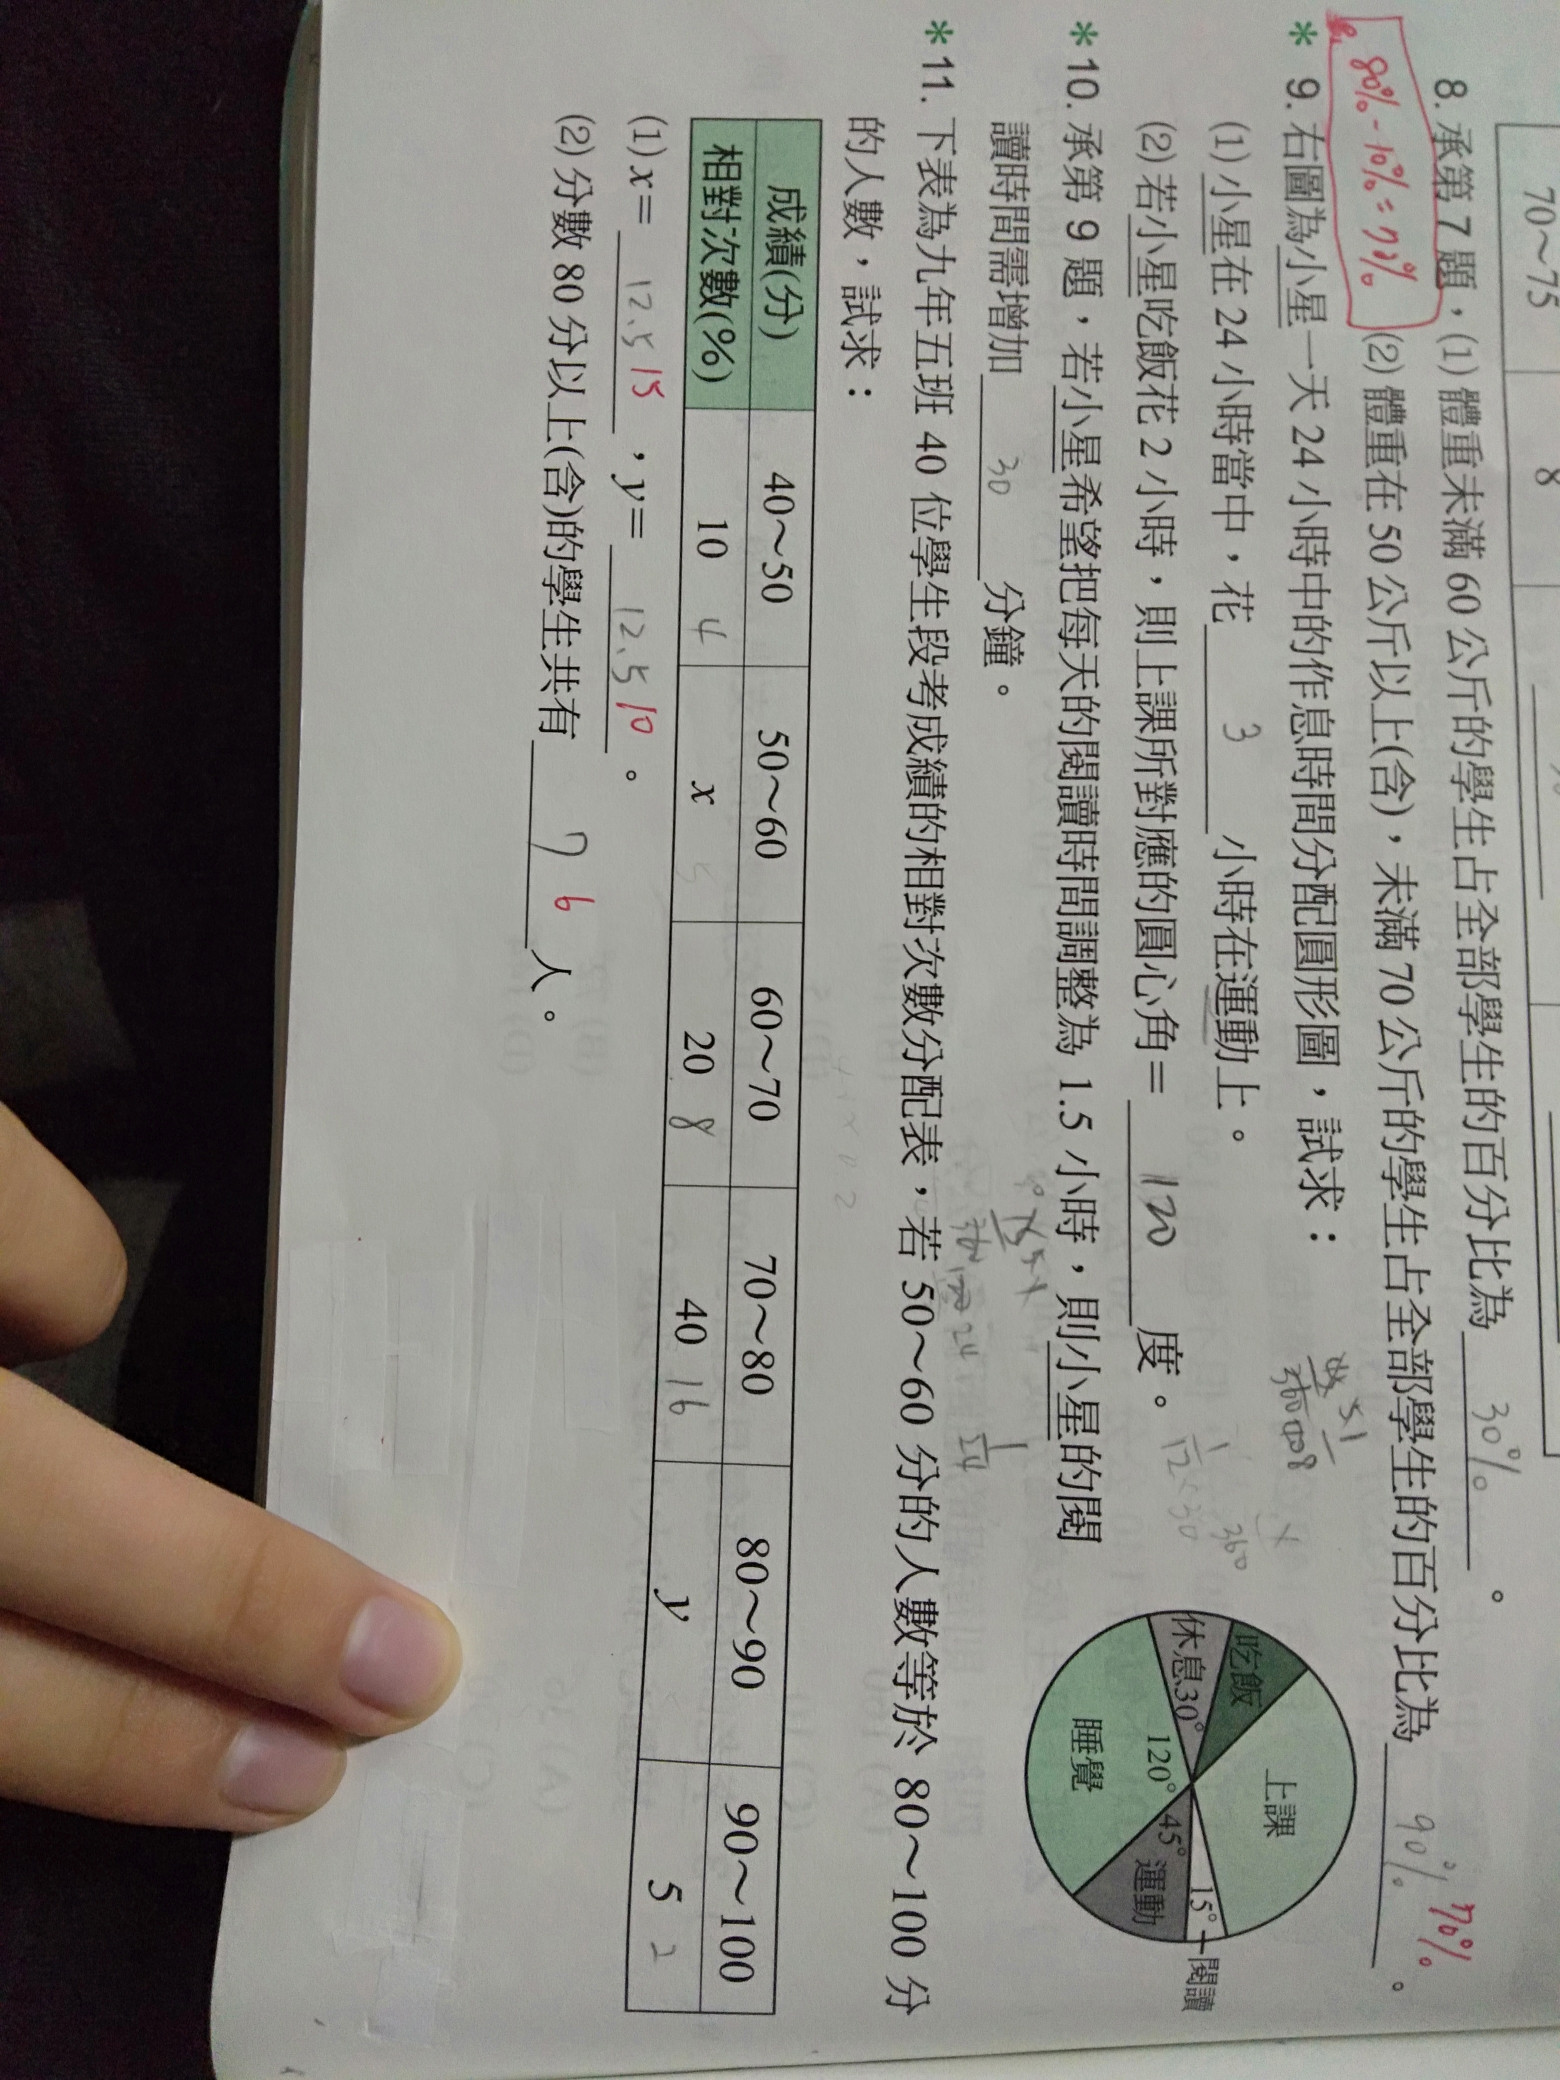 70～75
8
8. 承第 7 題，(1) 體重未滿 60 公斤的學生占全部學生的百分比為 30% 。
80% - 10% = 70%
(2) 體重在 50 公斤以上(含)，未滿 70 公斤的學生占全部學生的百分比為 90% 70% 。
* 9. 右圖為小星一天 24 小時中的作息時間分配圓形圖，試求：
(1) 小星在 24 小時當中，花 3 小時在運動上。
(2) 若小星吃飯花 2 小時，則上課所對應的圓心角＝ 120 度。
上課
吃飯
休息30°
120°
睡覺
45°
運動
15°
閱讀
* 10. 承第 9 題，若小星希望把每天的閱讀時間調整為 1.5 小時，則小星的閱
讀時間需增加 30 分鐘。
* 11. 下表為九年五班 40 位學生段考成績的相對次數分配表，若 50～60 分的人數等於 80～100 分
的人數，試求：
成績(分) 40～50 50～60 60～70 70～80 80～90 90～100
相對次數(%) 10 4 x 5 20 8 40 16 y 5 2
(1) x＝ 12.5 15 ，y＝ 12.5 10 。
(2) 分數 80 分以上(含)的學生共有 7 6 人。